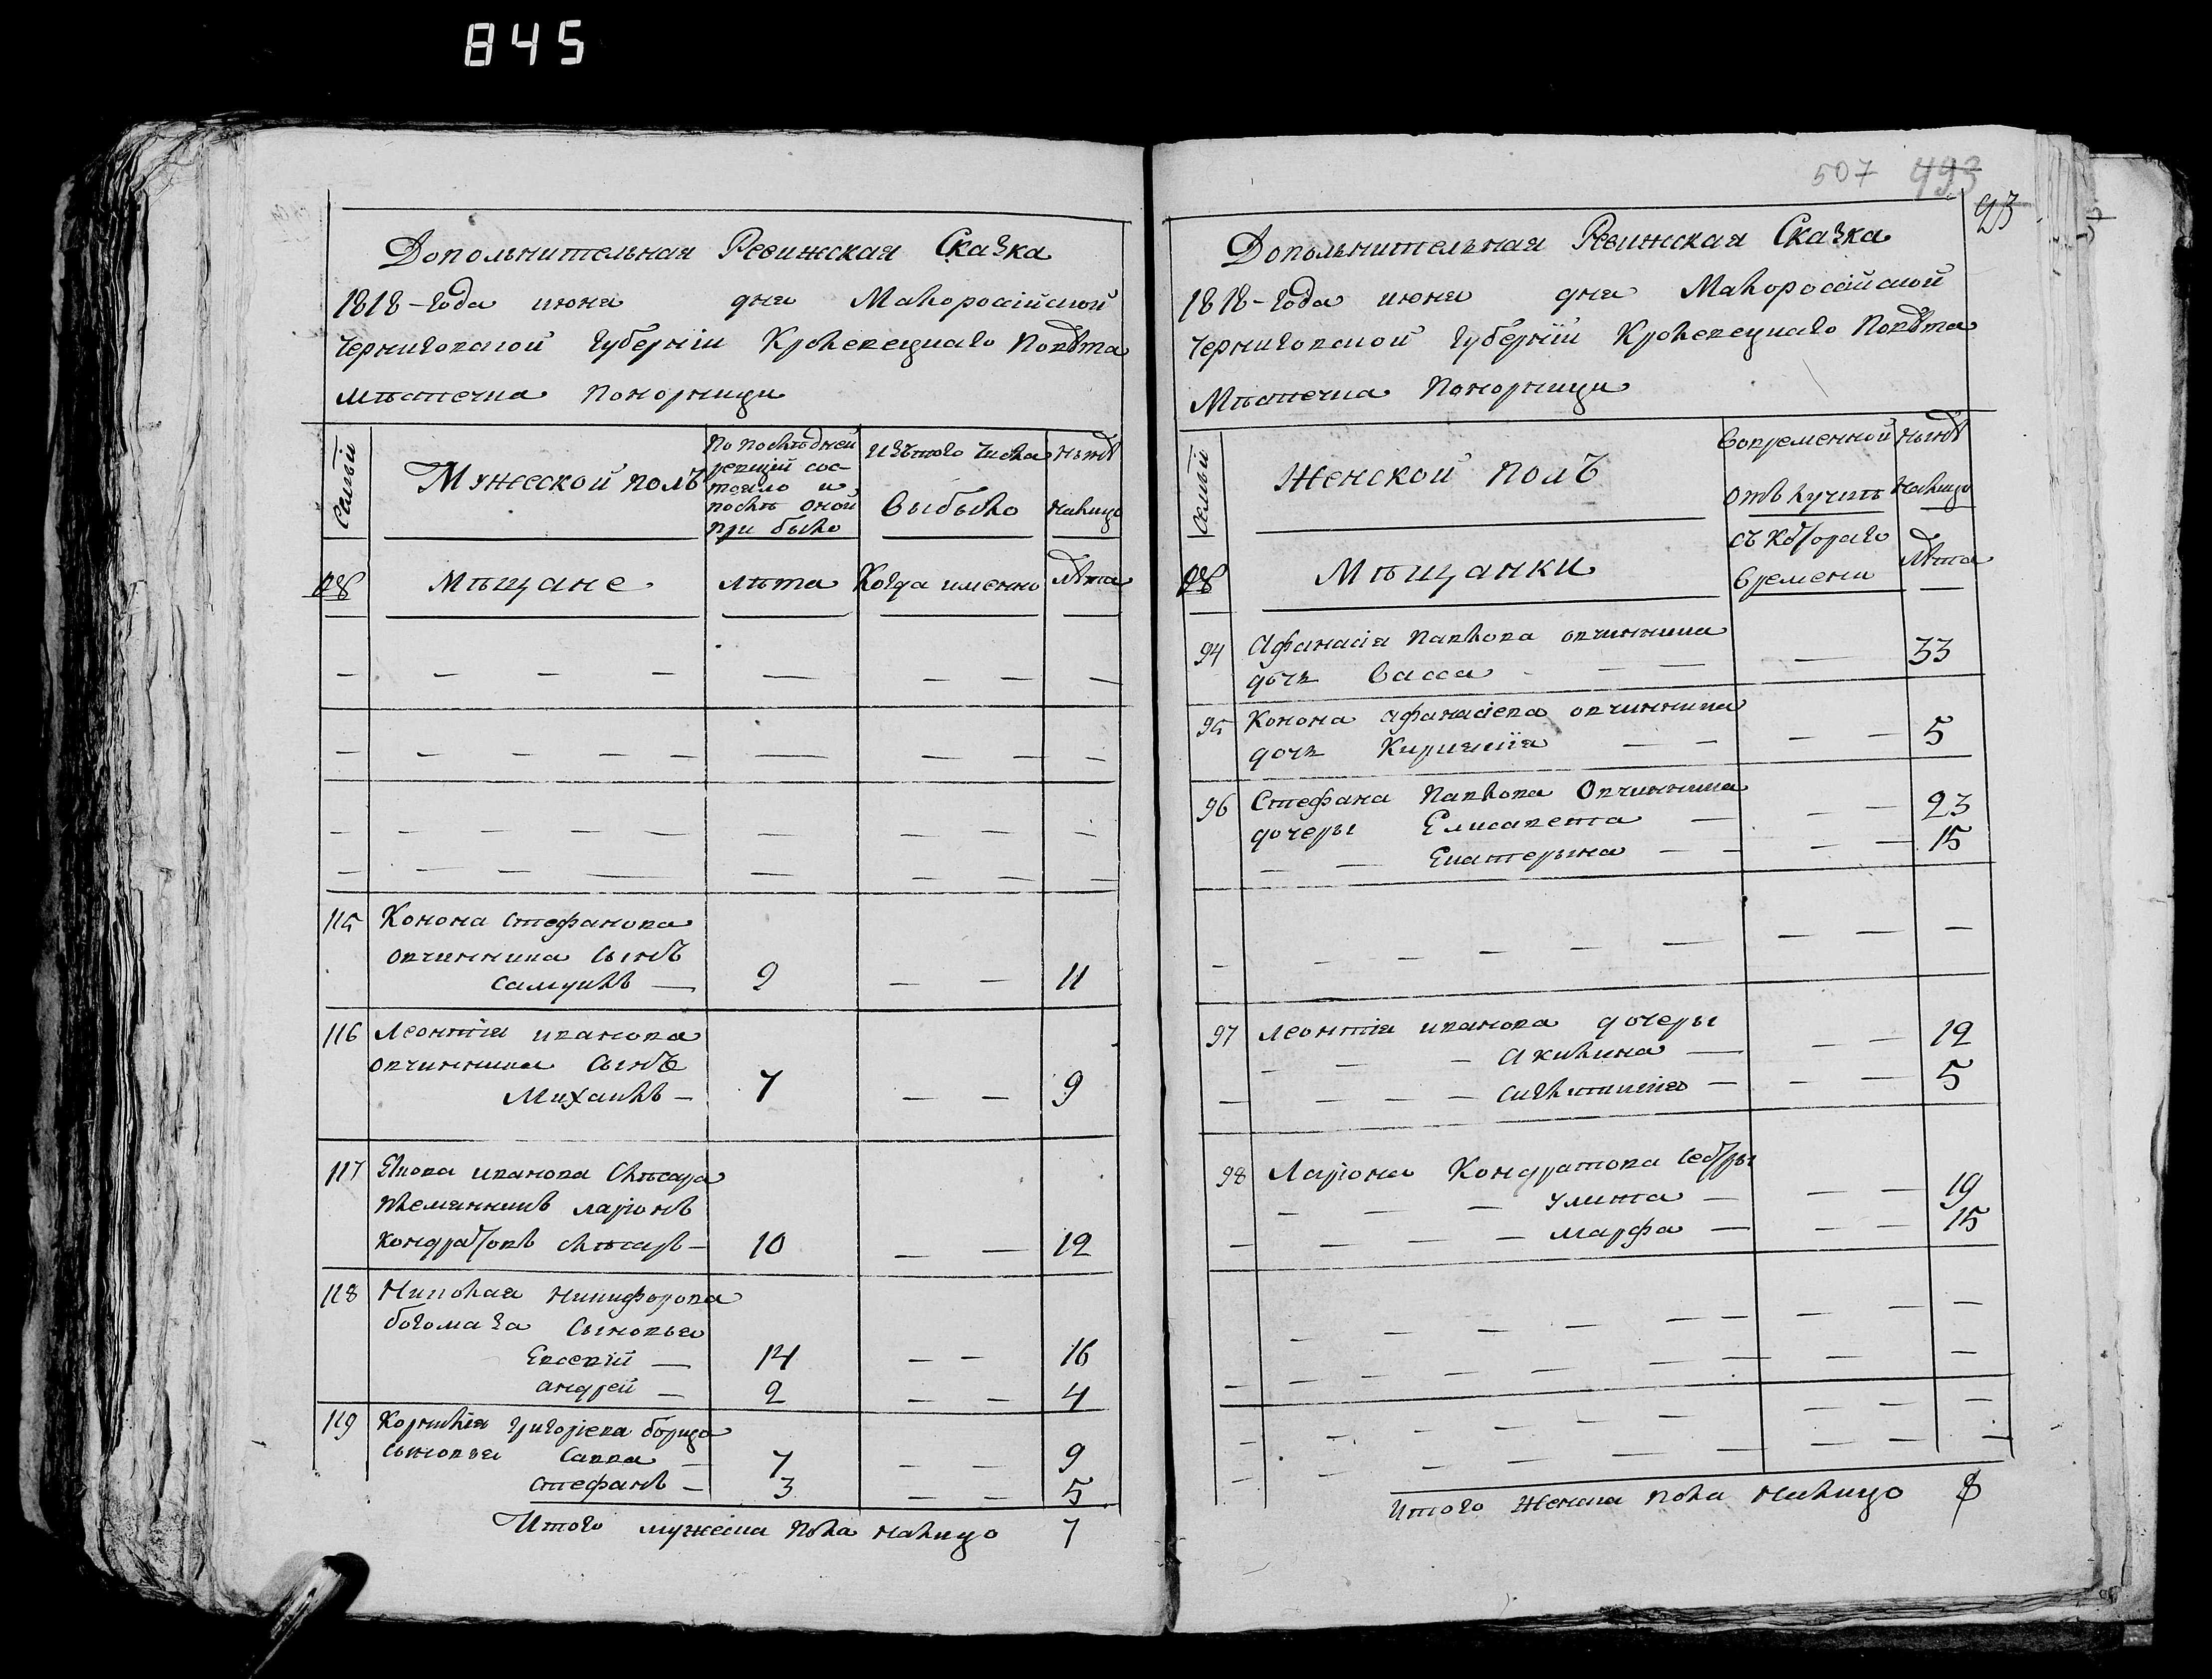 845
Дополнительная Ревижская Сказка
1818-года июня дня Малоросійской
Черниговской Губерніи Кролевецкаго Повѣта
Мѣстечка Понорници
Семьи
Мужеской полъ
По послѣдней
ревизіи сос-
тояло и
послѣ оной
при было
Изъ того числа
выбыло
нынѣ
налицо
№
Мѣщане
лѣта
Когда именно
лѣта
115 Конона Стефанова
овчинника Сынъ
Самуилъ — 9 — — 11
116 Леонтія иванова
овчинника Сынъ
Михаилъ — 7 — — 9
117 Якова иванова слѣсара
племянникъ ларіонъ
Кондратовъ слѣсаръ — 10 — — 12
118 Николая никифорова
богомаза Сыновья
Евсевій — 14 — — 16
андрей — 2 — — 4
119 Корнилія григоріева борца
сыновья Савва — 7 — — 9
Стефанъ — 3 — — 5
Итого мужеска пола налицо 7
507 493
Дополнительная Ревижская Сказка
1818-года июня дня Малоросійской
Черниговской Губерніи Кролевецкаго Повѣта
Мѣстечка Понорници
Семьи
Женской полъ
Вовременной
отлучкѣ
съ котораго
времени
нынѣ
налицо
№
Мѣщанки
лѣта
94 Афанасія Павлова овчинника
дочь Васса — — — 33
95 Конона афанасіева овчинника
дочь Киріякія — — — — 5
96 Стефана Павлова Овчинника
дочеры Елисавета — — — 23
— — Екатерина — — — — 15
97 Леонтія иванова дочеры
— Акилина — — — 12
— — — — Сиклитикія — — — 5
98 Ларіона Кондратова сестры
— — — Улита — — — 19
— — — — Марфа — — — 15
Итого Женска пола налицо 8